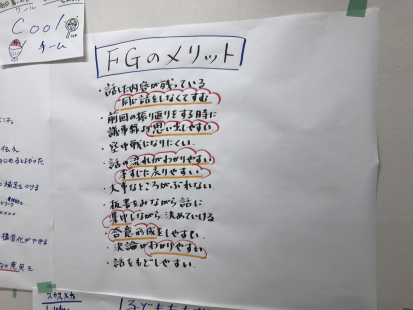 Cool
チーム
FGのメリット
・話した内容が残っている
同じ話をしなくてすむ
・前回の振り返りをする時に
議事録より思い出しやすい
・空中戦になりにくい
・話の流れがわかりやすい
本すじに戻りやすい
・大事なところがぶれない
・板書をみながら話に
集中しながら決めていける
・合意形成をしやすい
・決論がわかりやすい
・話をもどしやすい